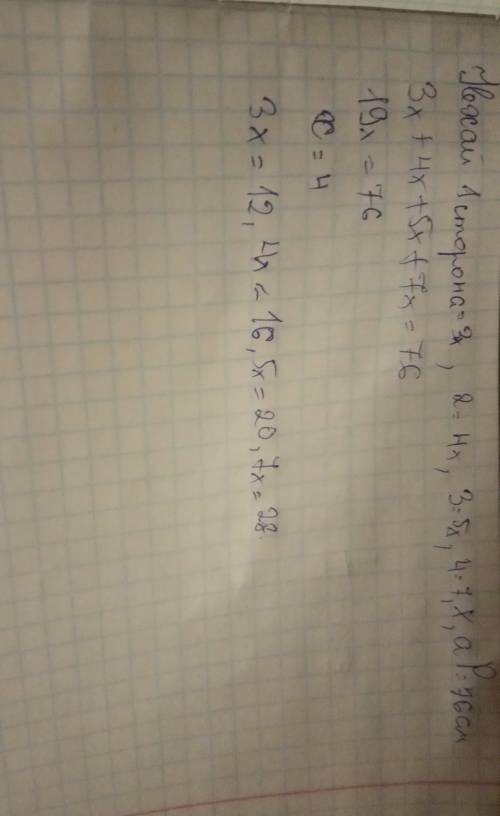 Нехай 1 сторона = 3x, 2 = 4x, 3 = 5x, 4 = 7x, а P = 76 см
3x + 4x + 5x + 7x = 76
19x = 76
x = 4
3x = 12, 4x = 16, 5x = 20, 7x = 28.